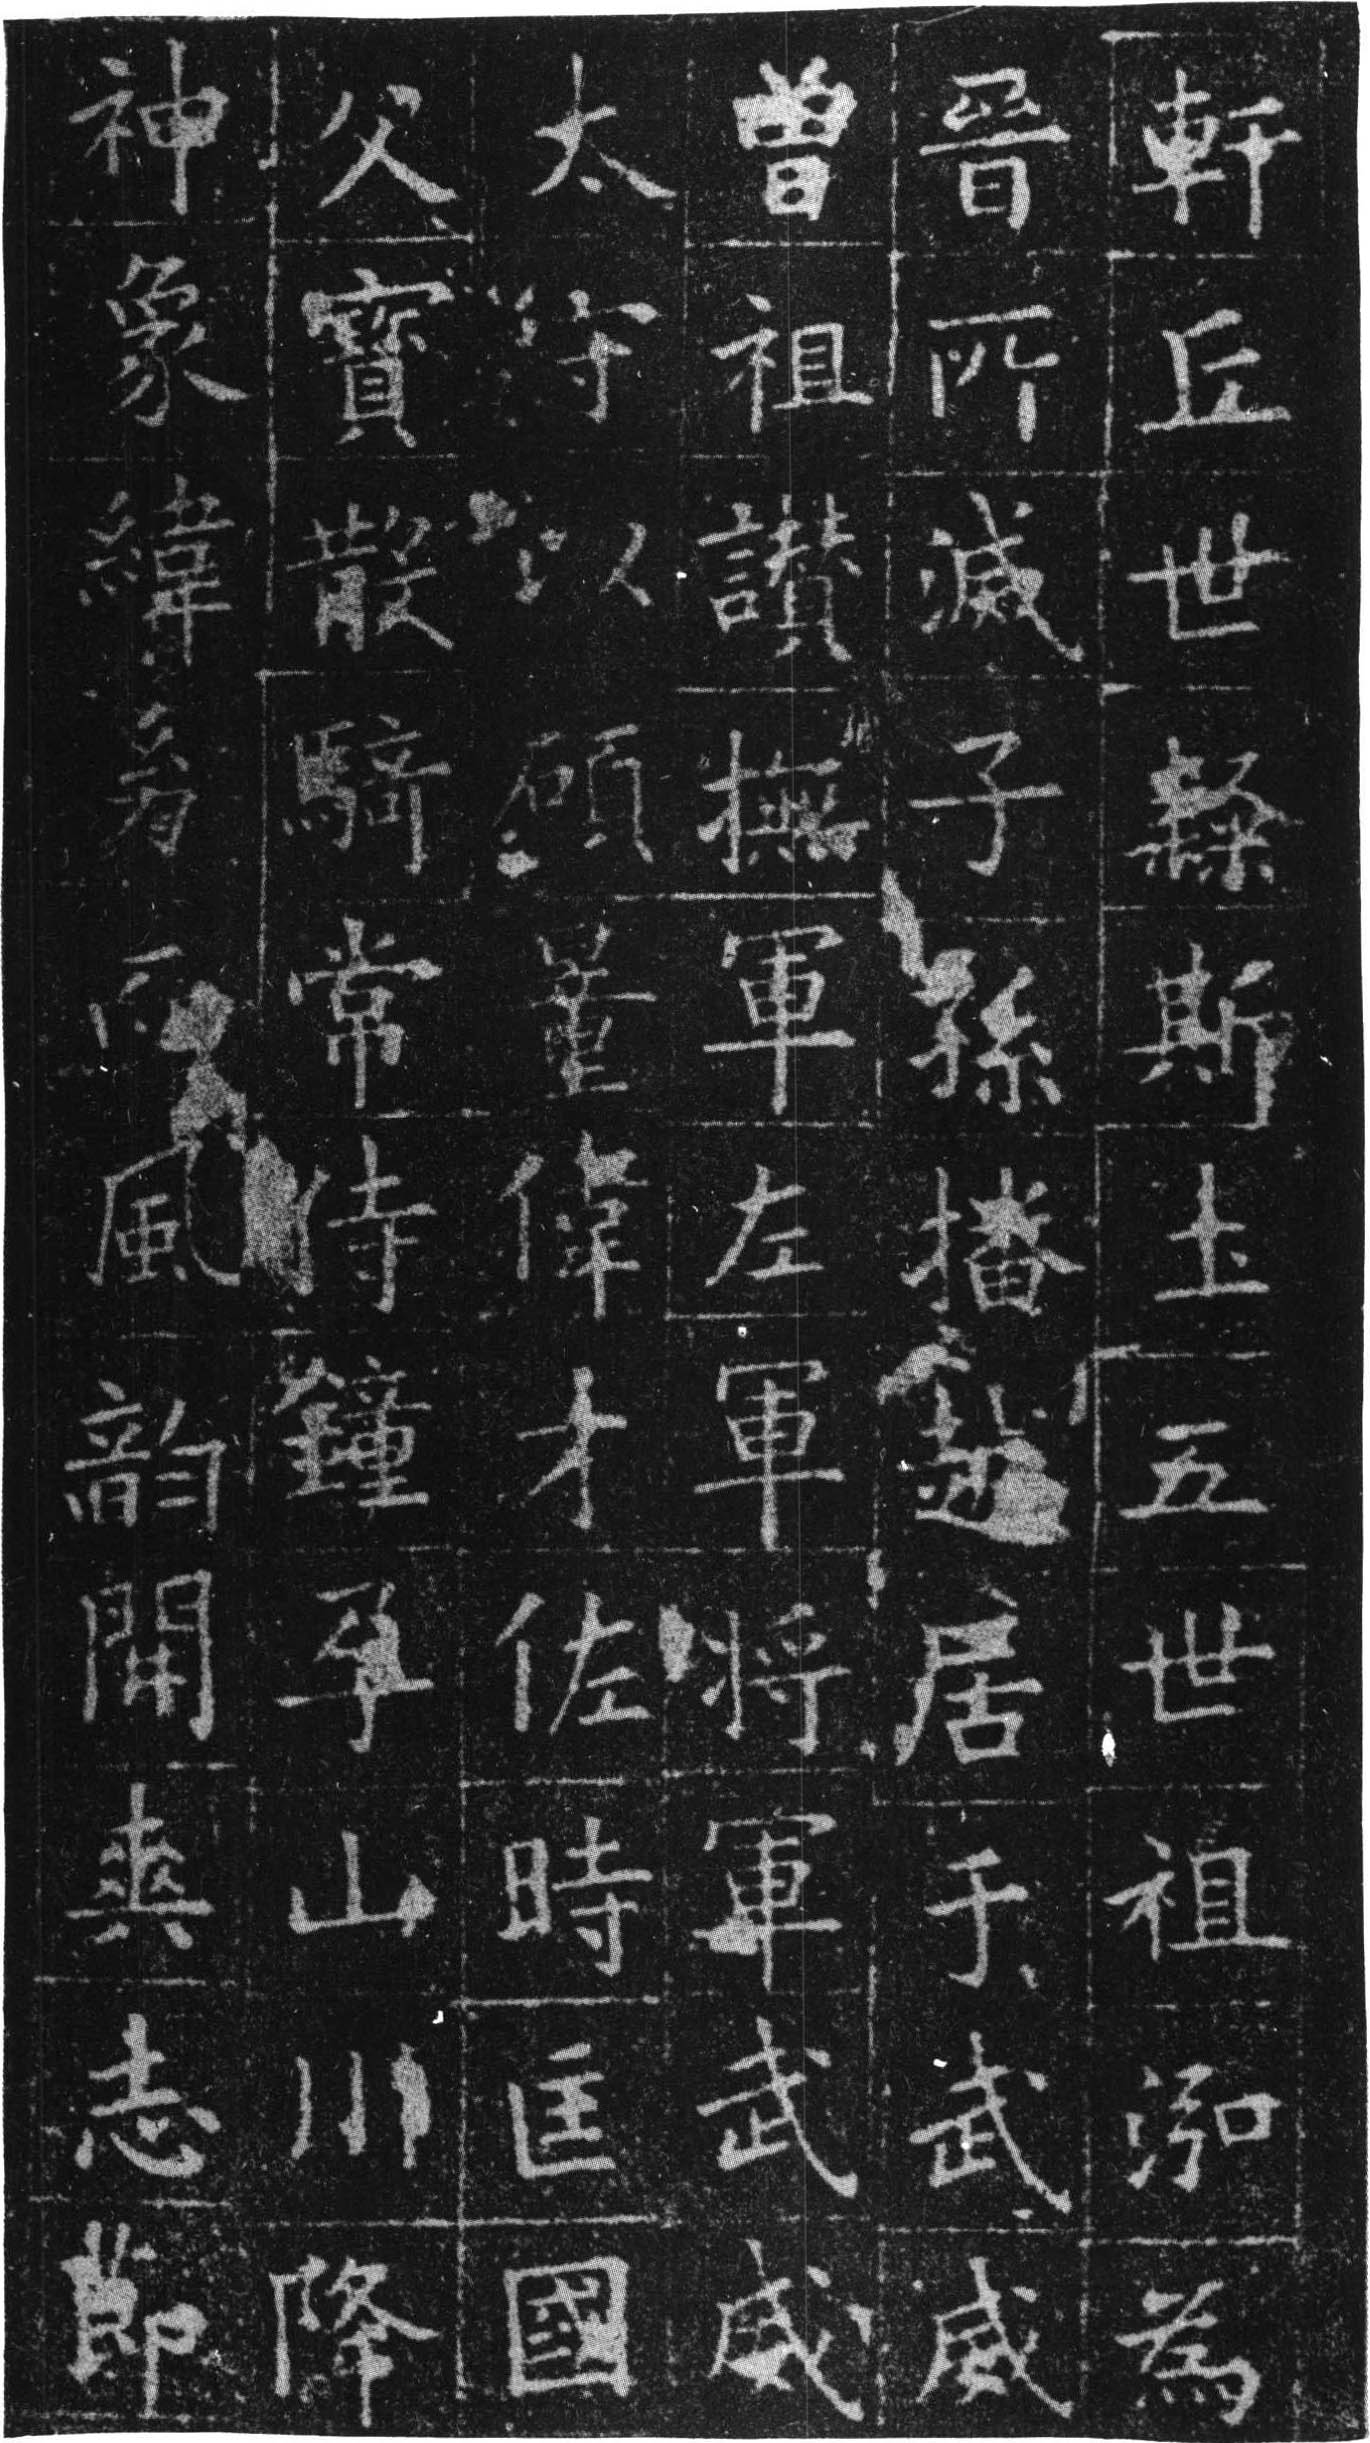 軒丘世斯土五世祖泓為
晉所滅子孫播越居于武威
曾祖讃撫軍左軍將軍武威
太守以碩量偉才佐時匡國
父寶散騎常侍鐘孕山川降
神象緯風韵開爽志節